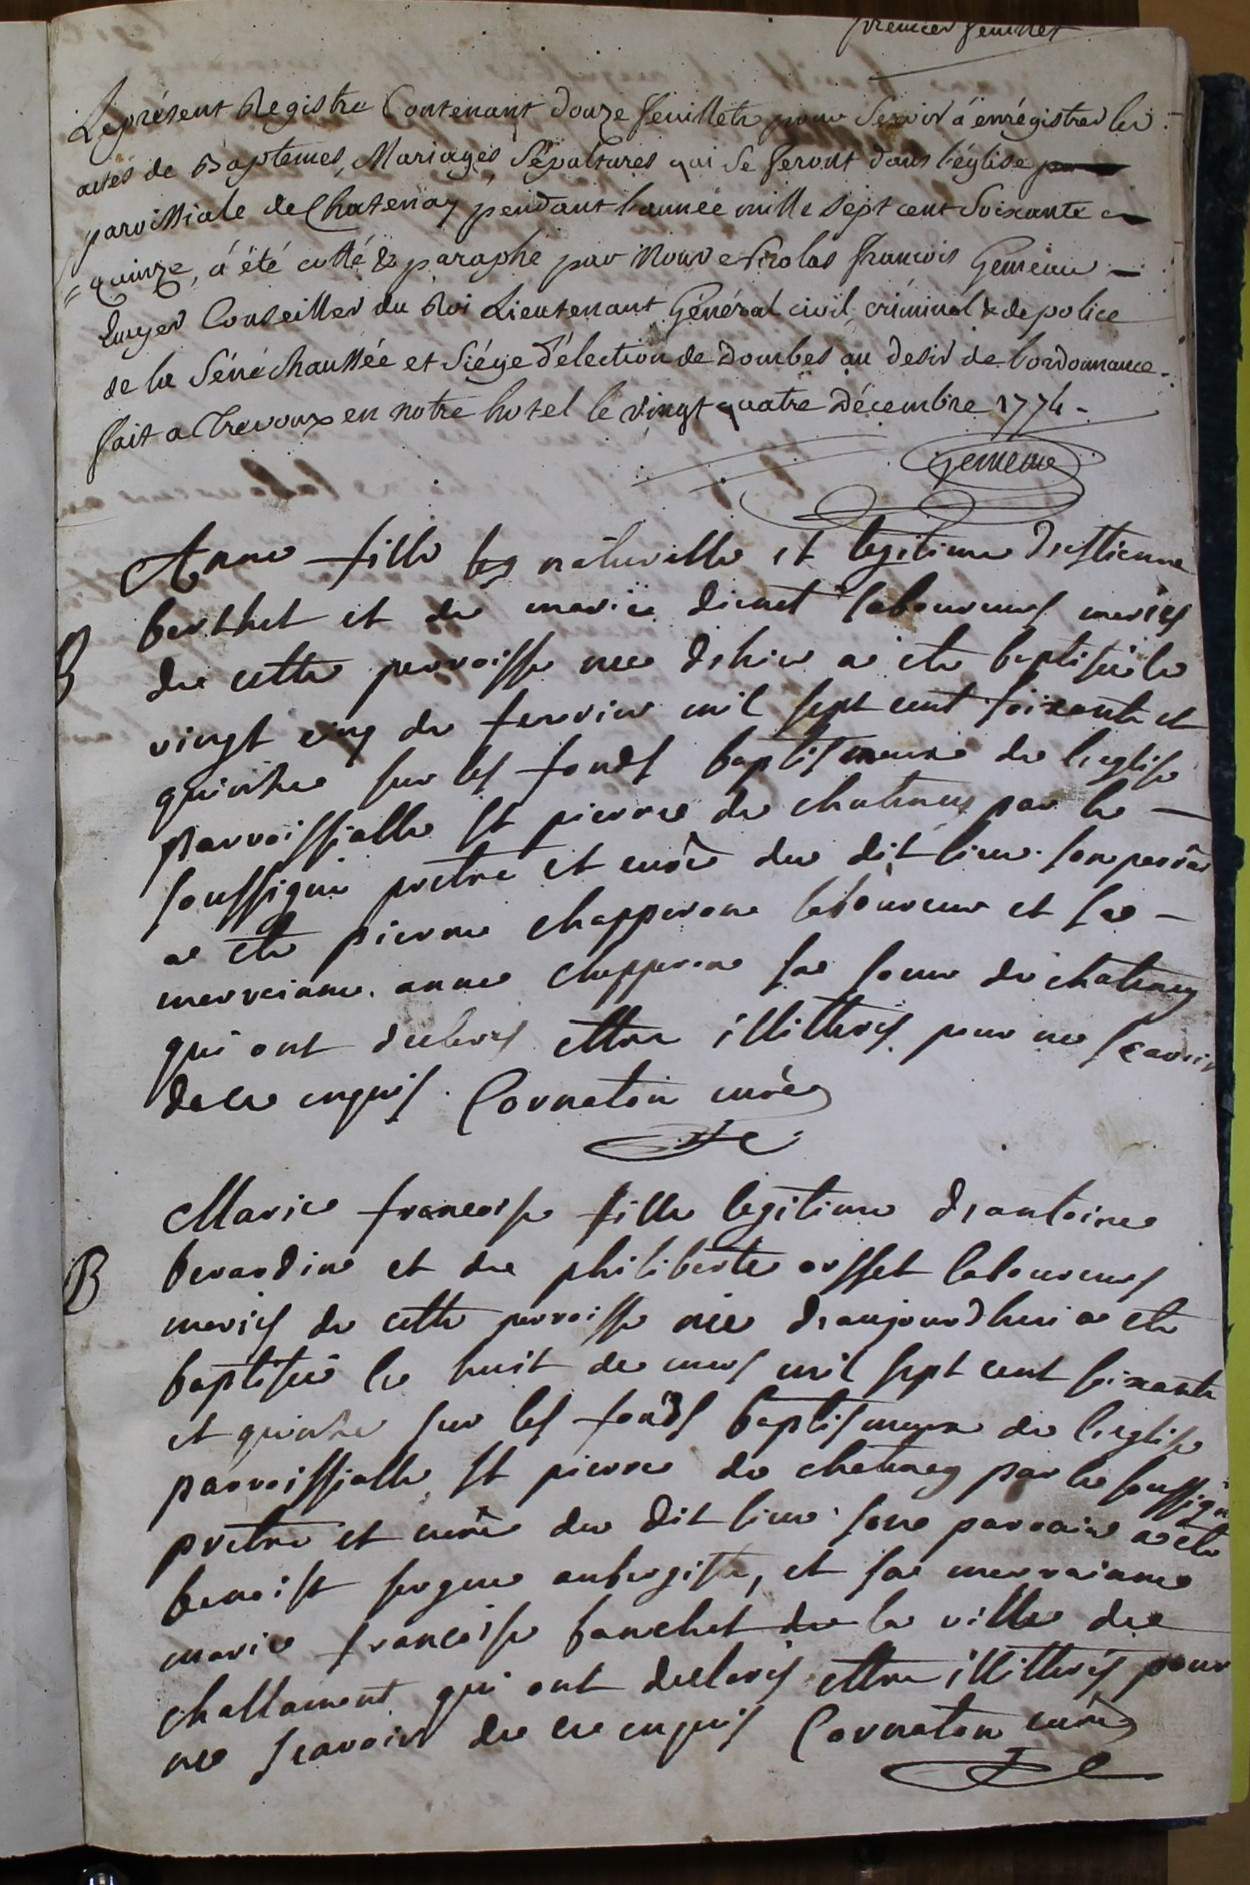 premier feuillet
Le présent Registre Contenant douze feuillets pour Servir à enrégistrer les
actes de Baptemes, Mariages, Sépultures qui se feront dans l'église
paroissiale de Chatenay pendant l'année mille sept cent soixante
quinze, a été cotté & paraphé par Nous Nicolas françois Gemeau
Ecuyer Conseiller du Roi Lieutenant Général civil, criminel & de police
de la Sénéchaussée et Siége d'élection de Dombes au desir de l'ordonnance.
fait a Trevoux en notre hotel le vingt quatre Décembre 1774
Gemeau
Anne fille leg naturelle et legitime d'estienne
berthet et de marie laboureurs mariés
B de cette parroisse nee d'hier a ete baptisée le
vingt cinq de fevrier mil sept cent soixante et
quinze sur les fonds baptismaux de l'eglise
parroissialle st pierre de chatenay par le
soussigné pretre et curé du dit lieu. son parrain
a ete pierre chapperon laboureur et sa
marraine anne chapperon sa soeur de chatenay
qui ont declarés ettre illitterés pour ne scavoir
de ce enquis. Cornaton curé
Marie francoise fille legitime d'antoine
B berardin et de philiberte laboureurs
mariés de cette parroisse née d'aujourdhui a ete
baptisée le huit de mars mil sept cent soixante
et quinze sur les fonds baptismaux de l'eglise
parroissialle st pierre de chatenay par le soussigné
pretre et curé du dit lieu. son parrain a ete
benoist aubergiste, et sa marraine
marie francoise de la ville de
challamont qui ont declarés ettre illitterés pour
ne scavoir de ce enquis Cornaton curé